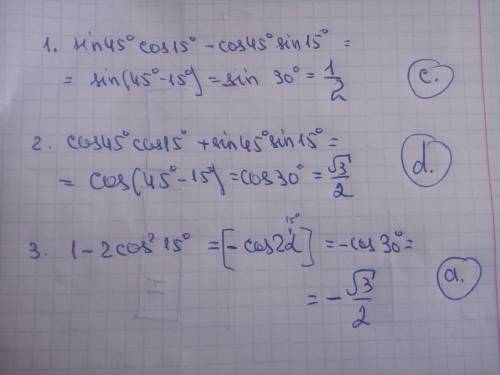 1. sin45° cos15° - cos45° sin15° =
= sin(45°-15°) = sin 30° = 1/2 c.
2. cos45° cos15° + sin45° sin15° =
= cos(45°-15°) = cos30° = √3/2 d.
15°
3. 1 - 2cos² 15° = [-cos2α] = -cos 30° =
= -√3/2 a.